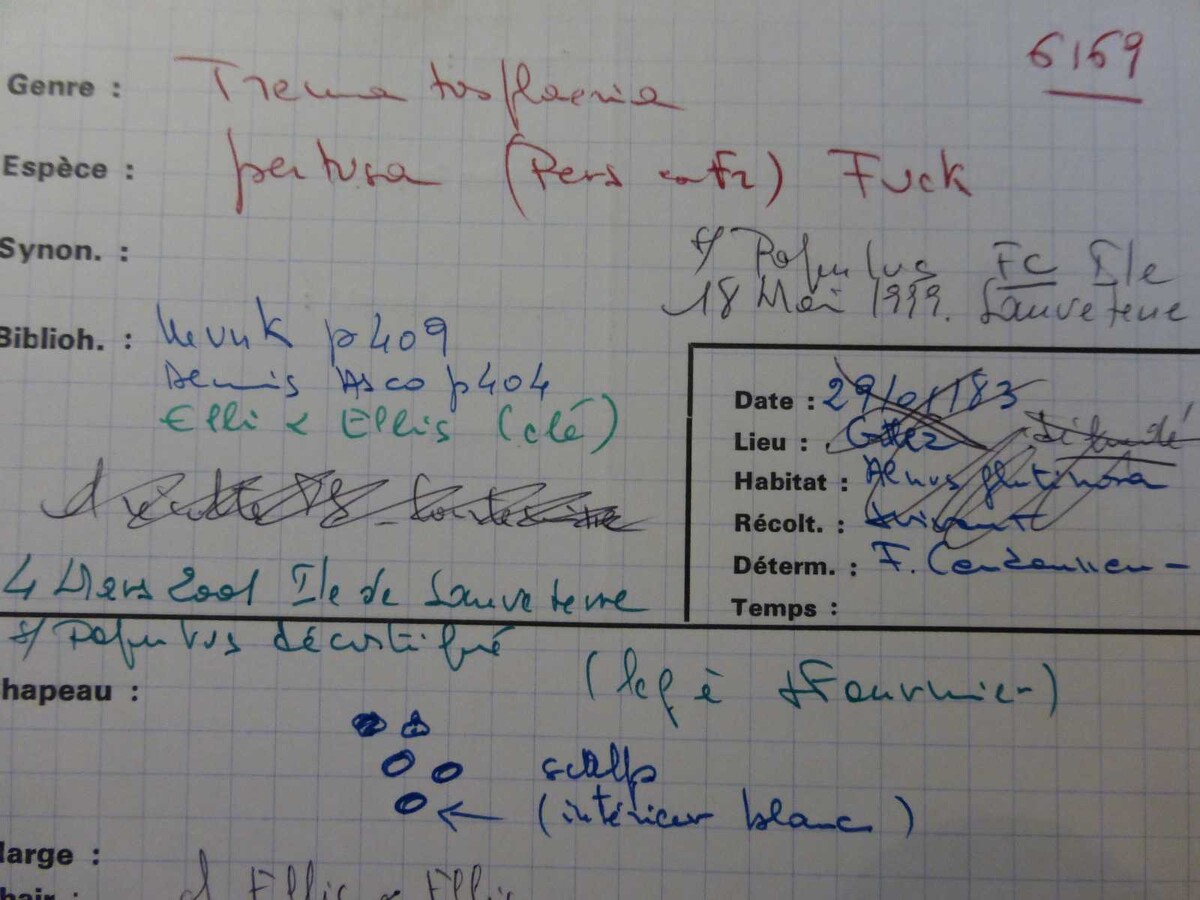 6169
Genre : Trematosphaeria
Espèce : pertusa (Pers ex Fr) Fuck
Synon. :
s/ Populus FC Ile
18 Mai 1999. Sauveterre
Biblioh. : Munk p 409
Dennis Asco p 404
Ellis & Ellis (clé)
Date : 29/01/83
Lieu :
Habitat : Alnus glutinosa
Récolt. :
Déterm. : F. Candoussau
Temps :
4 Mars 2001 Ile de Sauveterre
s/ Populus décortiqué
(leg à J Fournier)
hapeau :
scalp
(intérieur blanc)
large :
hair : d Ellis & Ellis